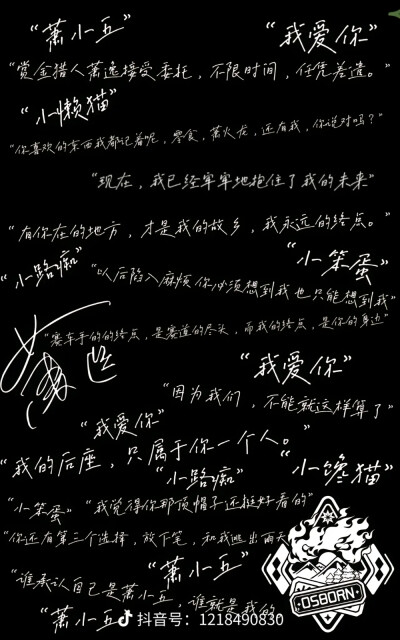 “萧小五” “我爱你”
“赏金猎人萧逸接受委托，不限时间，任凭差遣。”
“小懒猫”
“你喜欢的东西我都记着呢，零食，萧火龙，还有我，你说对吗？”
“现在，我已经牢牢地抱住了我的未来”
“有你在的地方，才是我的故乡，我永远的终点。”
“小路痴” “小笨蛋”
“以后陷入麻烦你必须想到我也只能想到我”
“赛车手的的终点，是赛道的尽头，而我的终点，是你的身边”
“我爱你”
“因为我们，不能就这样算了”
“我爱你”
“我的后座，只属于你一个人。”
“小路痴” “小馋猫”
“小笨蛋” “我觉得你那顶帽子还挺好看的”
“你还有第三个选择，放下笔，和我逃出雨天
“萧小五”
OSBORN
“谁承认自己是萧小五，谁就是我的
“萧小五 抖音号：1218490830